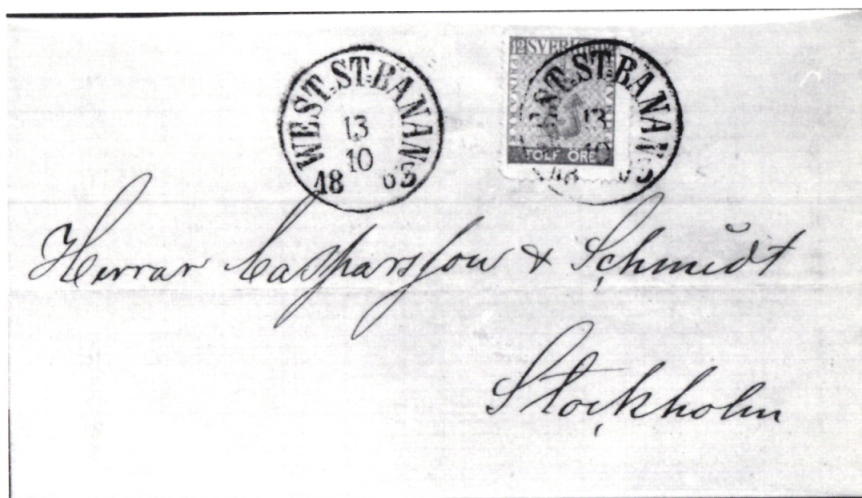 WEST.ST.BANAN
13
10
1863
12 SVERIGE
TOLF ÖRE
ST.ST.BANAN
13
10
18 63
Herrar Casparsson & Schmidt
Stockholm